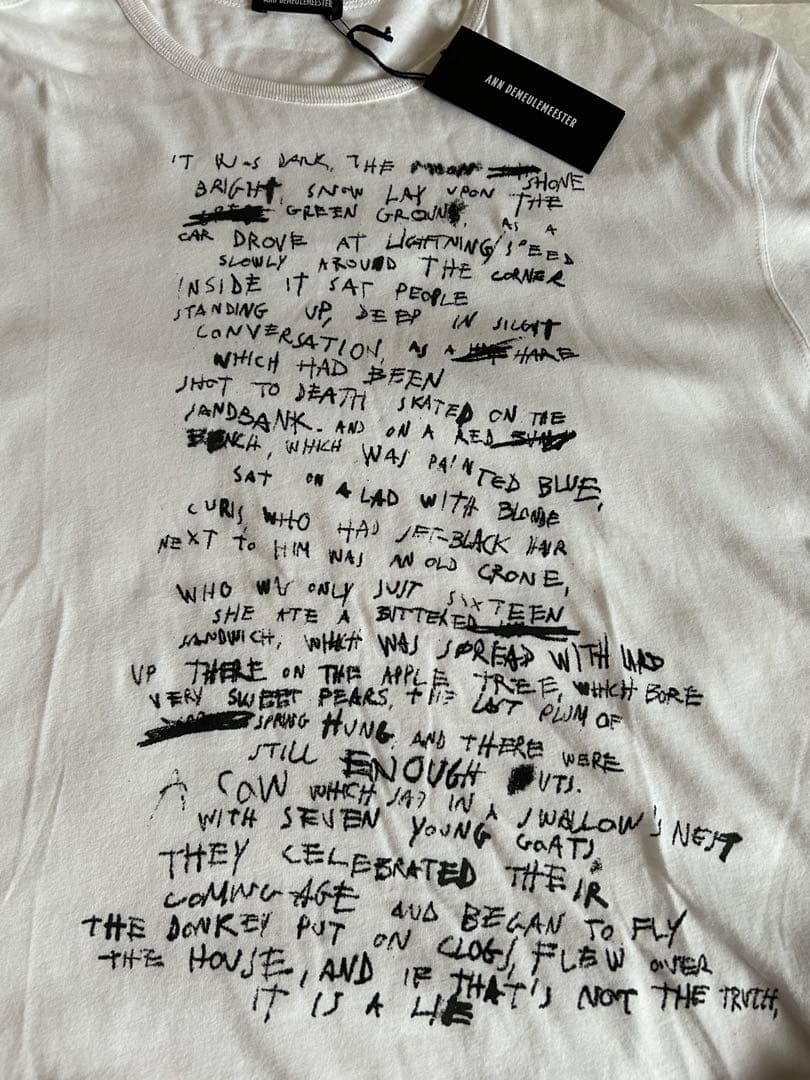 ANN DEMEULEMEESTER
ANN DEMEULEMEESTER
IT WAS DARK, THE MOON SHONE
BRIGHT, SNOW LAY UPON THE
GREEN GROUND, AS A
CAR DROVE AT LIGHTNING SPEED
SLOWLY AROUND THE CORNER
INSIDE IT SAT PEOPLE
STANDING UP, DEEP IN SILENT
CONVERSATION, AS A HARE
WHICH HAD BEEN
SHOT TO DEATH SKATED ON THE
SANDBANK. AND ON A RED
BENCH, WHICH WAS PAINTED BLUE,
SAT ON A LAD WITH BLONDE
CURLS, WHO HAD JET-BLACK HAIR
NEXT TO HIM WAS AN OLD CRONE,
WHO WAS ONLY JUST SIXTEEN
SHE ATE A BUTTERED
SANDWICH, WHICH WAS SPREAD WITH LARD
UP THERE ON THE APPLE TREE, WHICH BORE
VERY SWEET PEARS, THE LAST PLUM OF
SPRING HUNG, AND THERE WERE
STILL ENOUGH NUTS.
A COW WHICH SAT IN A SWALLOW'S NEST
WITH SEVEN YOUNG GOATS,
THEY CELEBRATED THEIR
COMING-AGE AND BEGAN TO FLY
THE DONKEY PUT ON CLOGS, FLEW OVER
THE HOUSE, AND IF THAT'S NOT THE TRUTH,
IT IS A LIE